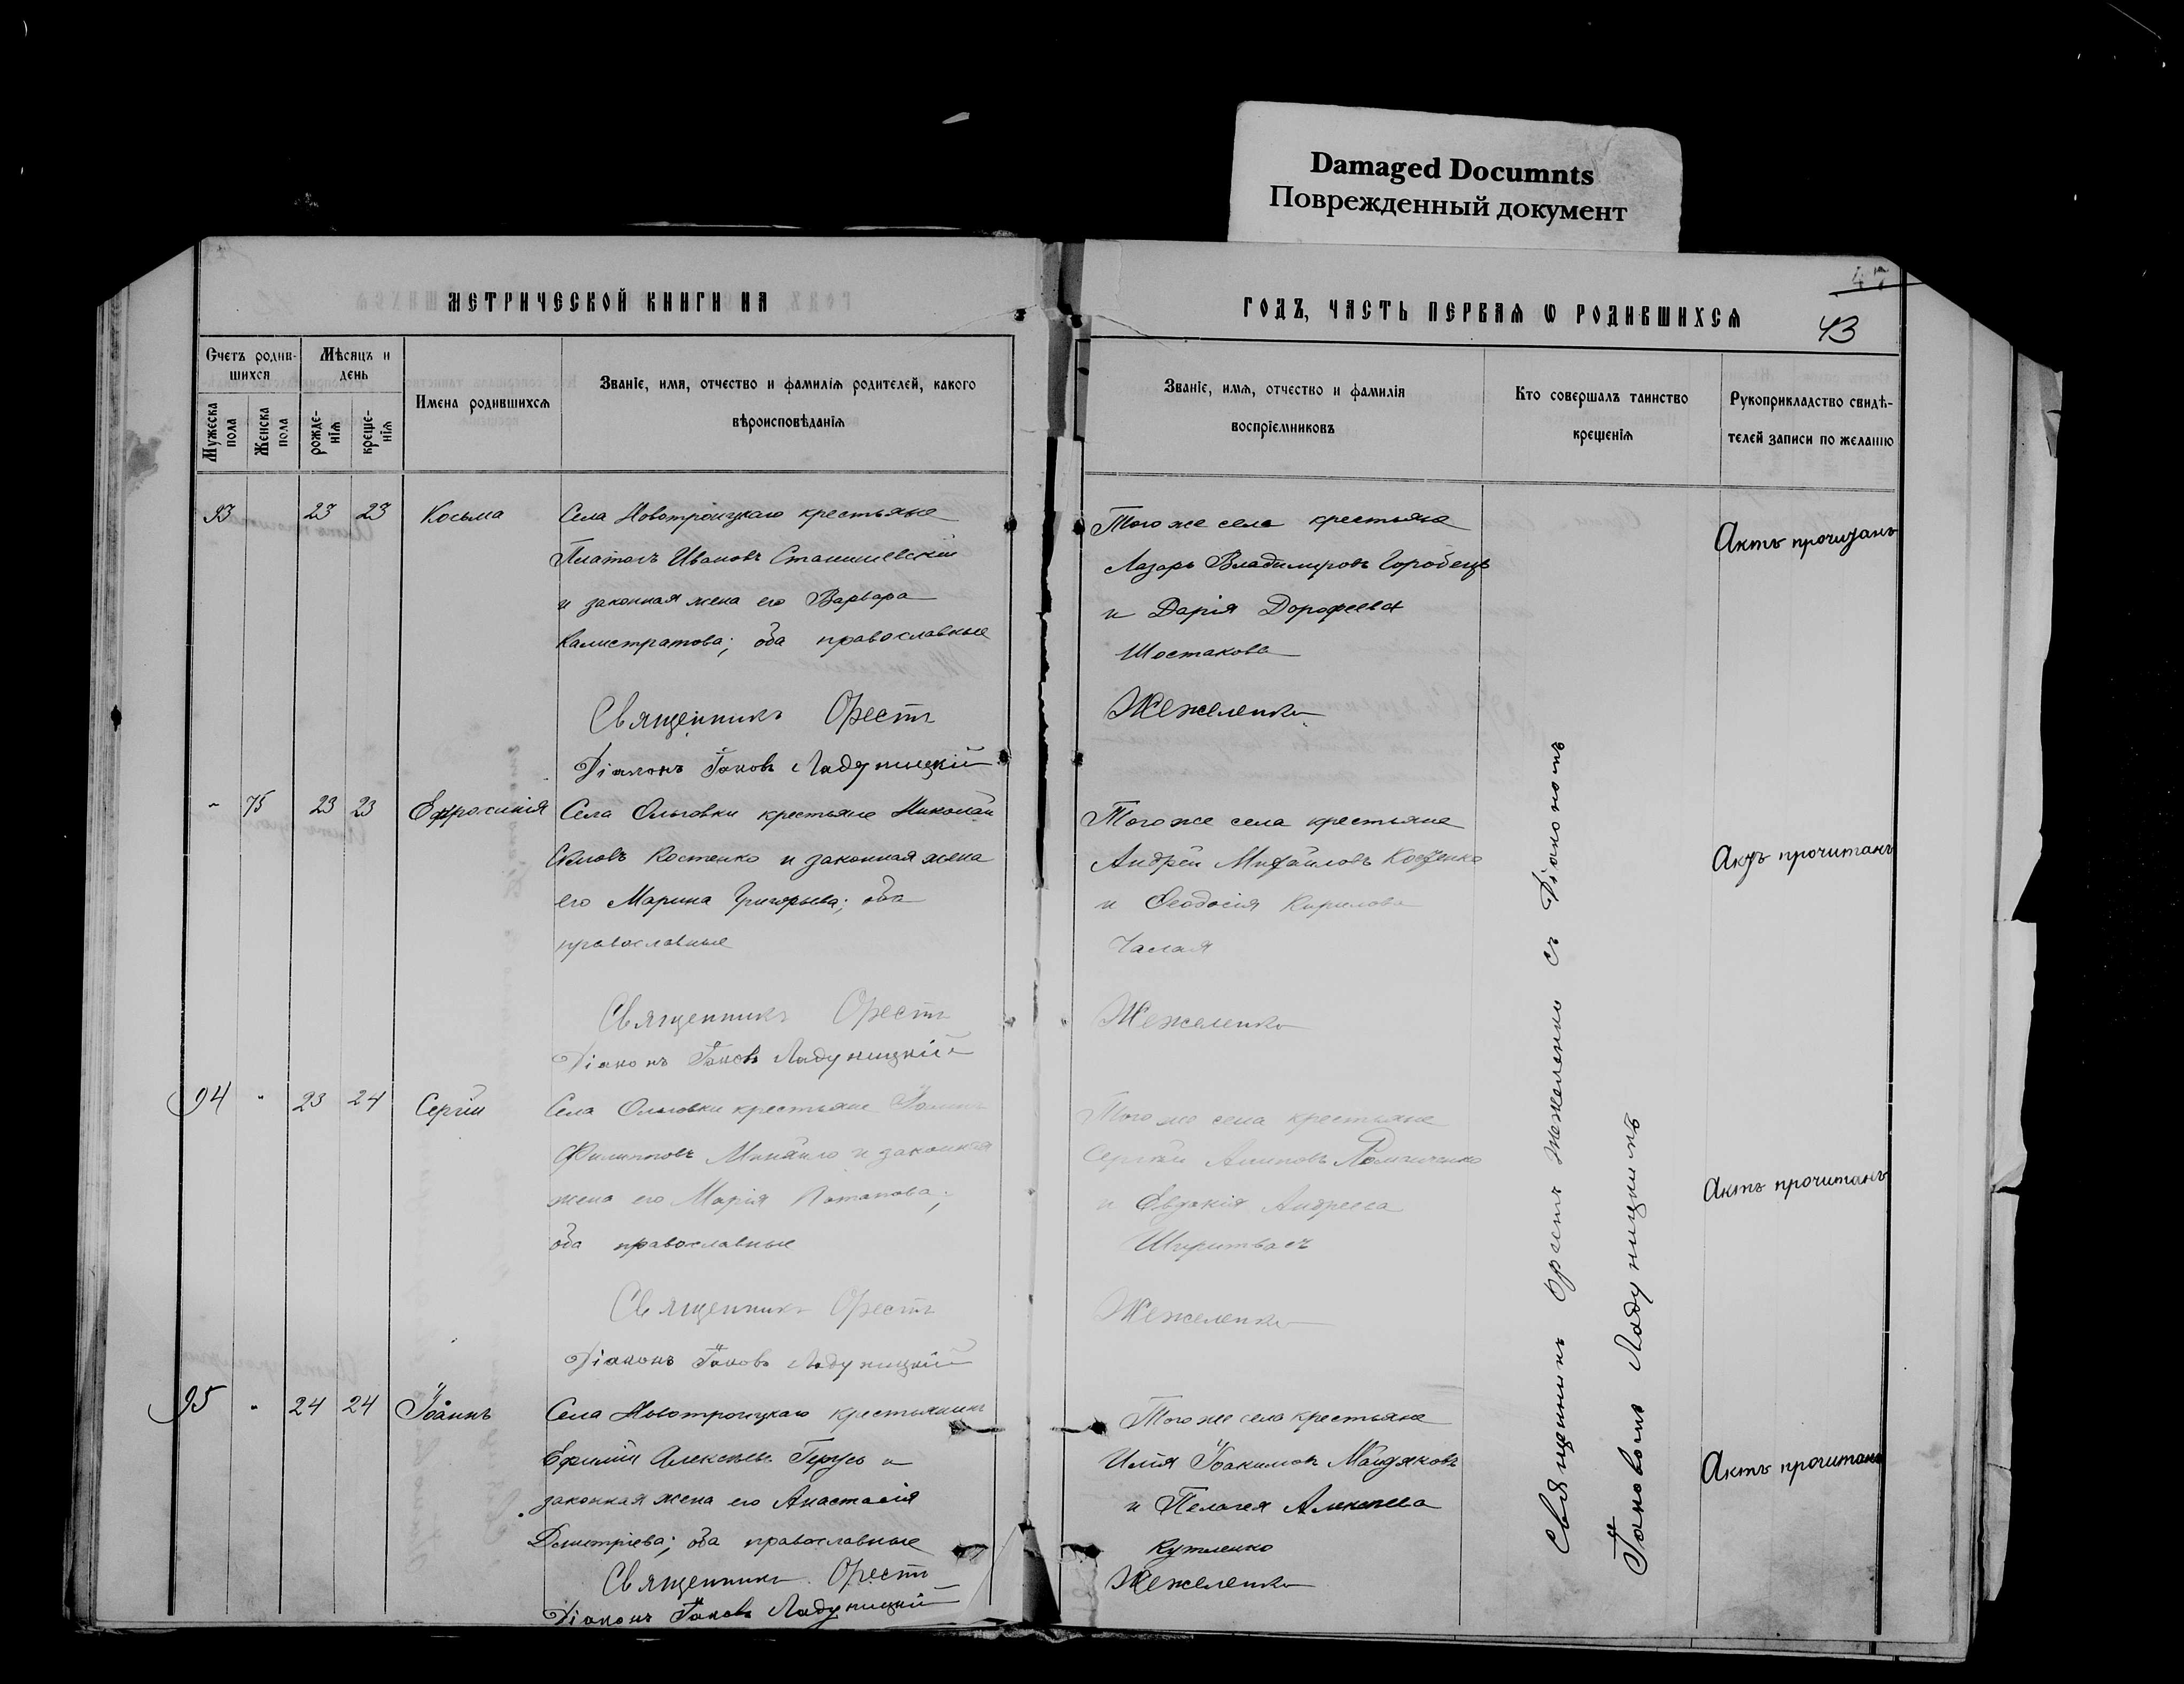 Damaged Documnts
Поврежденный документ
МЕТРИЧЕСКОЙ КНИГИ НА
ГОДЪ, ЧАСТЬ ПЕРВАЯ Ѡ РОДИВШИХСЯ
43
Счетъ родив-
шихся
Мѣсяцъ и
день
Мужеска
пола
Женска
пола
рожде-
нія
креще-
нія
Имена родившихся
Званіе, имя, отчество и фамилія родителей, какого
вѣроисповѣданія
Званіе, имя, отчество и фамилія
воспріемниковъ
Кто совершалъ таинство
крещенія
Рукоприкладство свидѣ-
телей записи по желанію
93 23 23 Косьма
Села Новотроицкаго крестьяне
Платонъ Ивановъ Станишевскій
и законная жена его Варвара
Калистратова; оба православные
Священникъ Орестъ
Діаконъ Іаковъ Ладуницкій
Того же села крестьяне
Лазарь Владимировъ Горобецъ
и Дарія Дорофеева
Шостакова
Жежеленко
Актъ прочитанъ
" 75 23 23 Ефросинія
Села Ольговки крестьяне Николай
Силовъ Костенко и законная жена
его Марина Григорьева; оба
православные
Священникъ Орестъ
Діаконъ Іаковъ Ладуницкій
Того же села крестьяне
Андрей Михайловъ Костенко
и Феодосія Кирилова
Чалая
Жежеленко
Актъ прочитанъ
94 " 23 24 Сергій
Села Ольговки крестьяне Іоаннъ
Филипповъ и законная
жена его Марія Потапова;
оба православные
Священникъ Орестъ
Діаконъ Іаковъ Ладуницкій
Того же села крестьяне
Сергій
и Евдокія Андреева
Жежеленко
Актъ прочитанъ
95 " 24 24 Іоаннъ
Села Новотроицкаго крестьянинъ
Ефимій Алексеевъ Герусъ и
законная жена его Анастасія
Димитріева; оба православные
Священникъ Орестъ
Діаконъ Іаковъ Ладуницкій
Того же села крестьяне
Илія Іоакимовъ
и Пелагея Алексеева
Кутленко
Жежеленко
Актъ прочитанъ
Священникъ Орестъ Жежеленко съ Діакономъ
Іаковомъ Ладуницкимъ